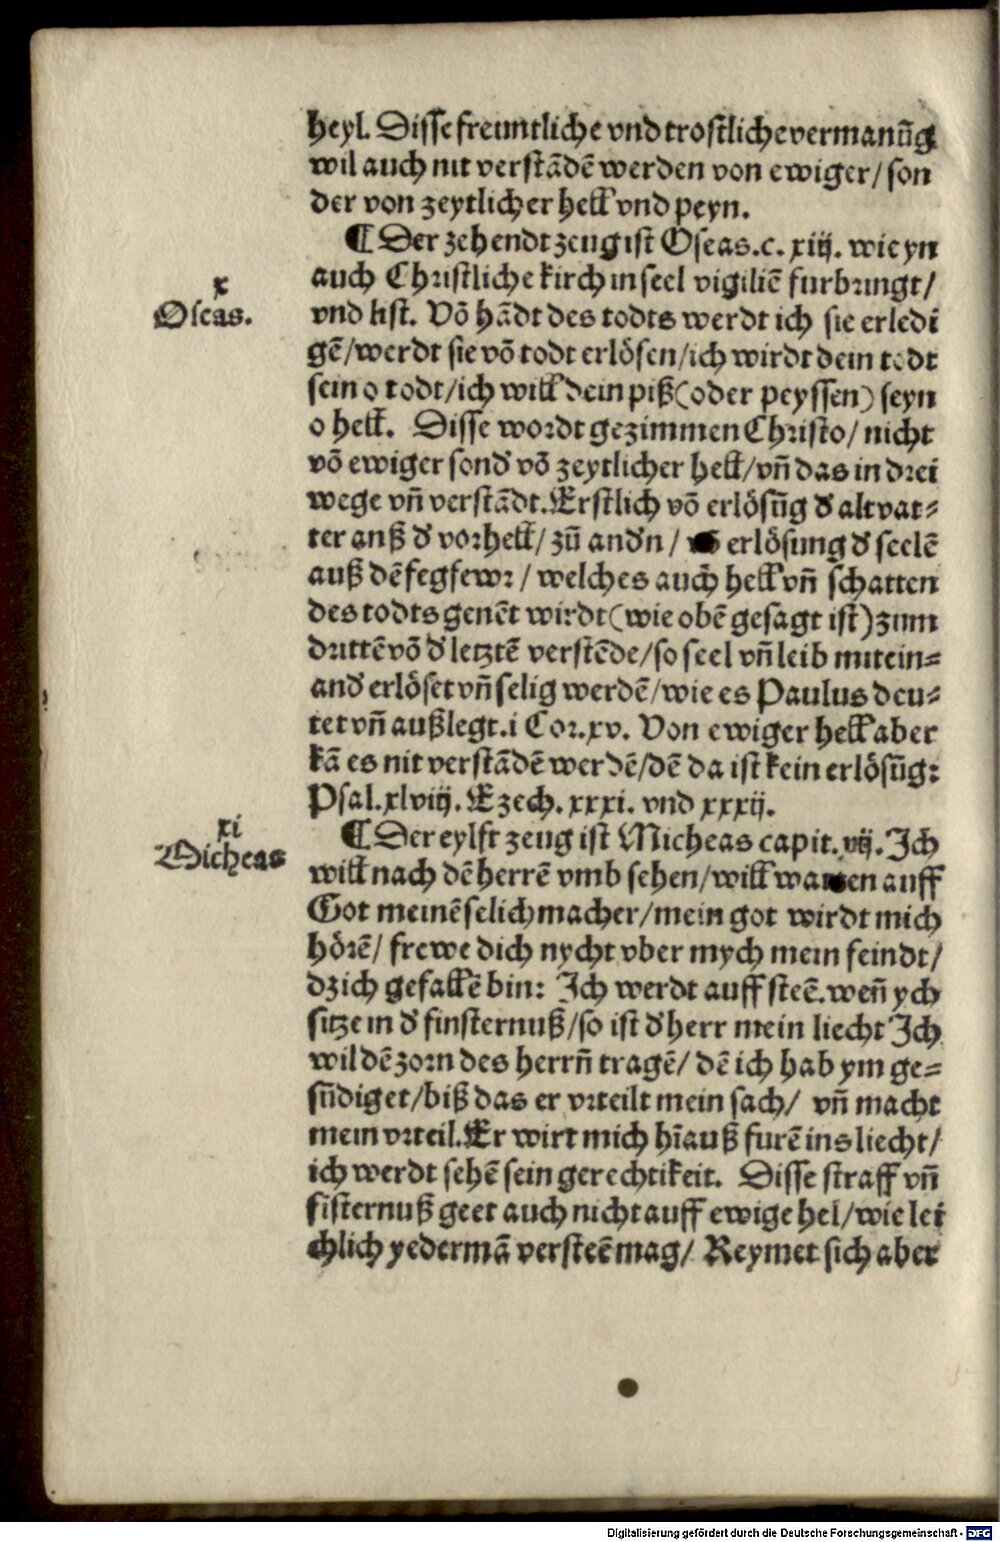 heyl. Disse freuntliche vnd trostliche vermanũg
wil auch nit verstãdẽ werden von ewiger/ son
der von zeytlicher hell vnd peyn.
¶ Der zehendt zeug ist Oseas.c. xiij. wie yn
auch Christliche kirch in seel vigiliẽ furbringt/
x
Oseas.
vnd list. Võ hãdt des todts werdt ich sie erledi
gẽ/werdt sie võ todt erlösen/ich wirdt dein todt
sein o todt/ich will dein piß(oder peyssen) seyn
o hell. Disse wordt gezimmen Christo/ nicht
võ ewiger sond' võ zeytlicher hell/vñ das in drei
wege vñ verstãdt. Erstlich võ erlösũg d' altvat⸗
ter anß d' vorhell/ zũ and'n / erlösung d' seelẽ
auß dẽ fegfewr / welches auch hell vñ schatten
des todts genẽt wirdt(wie obẽ gesagt ist)zum
drittẽ võ d' letztẽ verstẽde/so seel vñ leib mitein⸗
and' erlöset vñ selig werdẽ/wie es Paulus deu⸗
tet vñ außlegt.i Cor.xv. Von ewiger hell aber
kã es nit verstãdẽ werdẽ/dẽ da ist kein erlösũg:
Psal.xlviij. Ezech. xxxi. vnd xxxij.
xi
Micheas
¶ Der eylft zeug ist Micheas capit. vij. Ich
will nach dẽ herrẽ vmb sehen/will warten auff
Got meinẽ selichmacher/mein got wirdt mich
hörẽ/ frewe dich nycht vber mych mein feindt/
dz ich gefallẽ bin: Ich werdt auff steẽ. weñ ych
sitze in d' finsternuß/so ist d' herr mein liecht Ich
wil dẽ zorn des herrñ tragẽ/ dẽ ich hab ym ge⸗
sũdiget/biß das er vrteilt mein sach/ vñ macht
mein vrteil. Er wirt mich hĩauß furẽ ins liecht/
ich werdt sehẽ sein gerechtikeit. Disse straff vñ
fisternuß geet auch nicht auff ewige hel/wie lei
chlich yedermã versteẽ mag/ Reymet sich aber
Digitalisierung gefördert durch die Deutsche Forschungsgemeinschaft - DFG